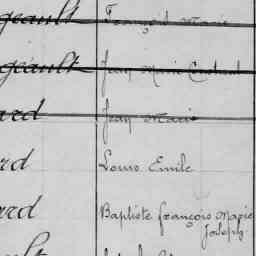 geault François Marie
geault Jean Marie
ard Jean Marie
rd Louis Emile
ard Baptiste François Marie
Joseph